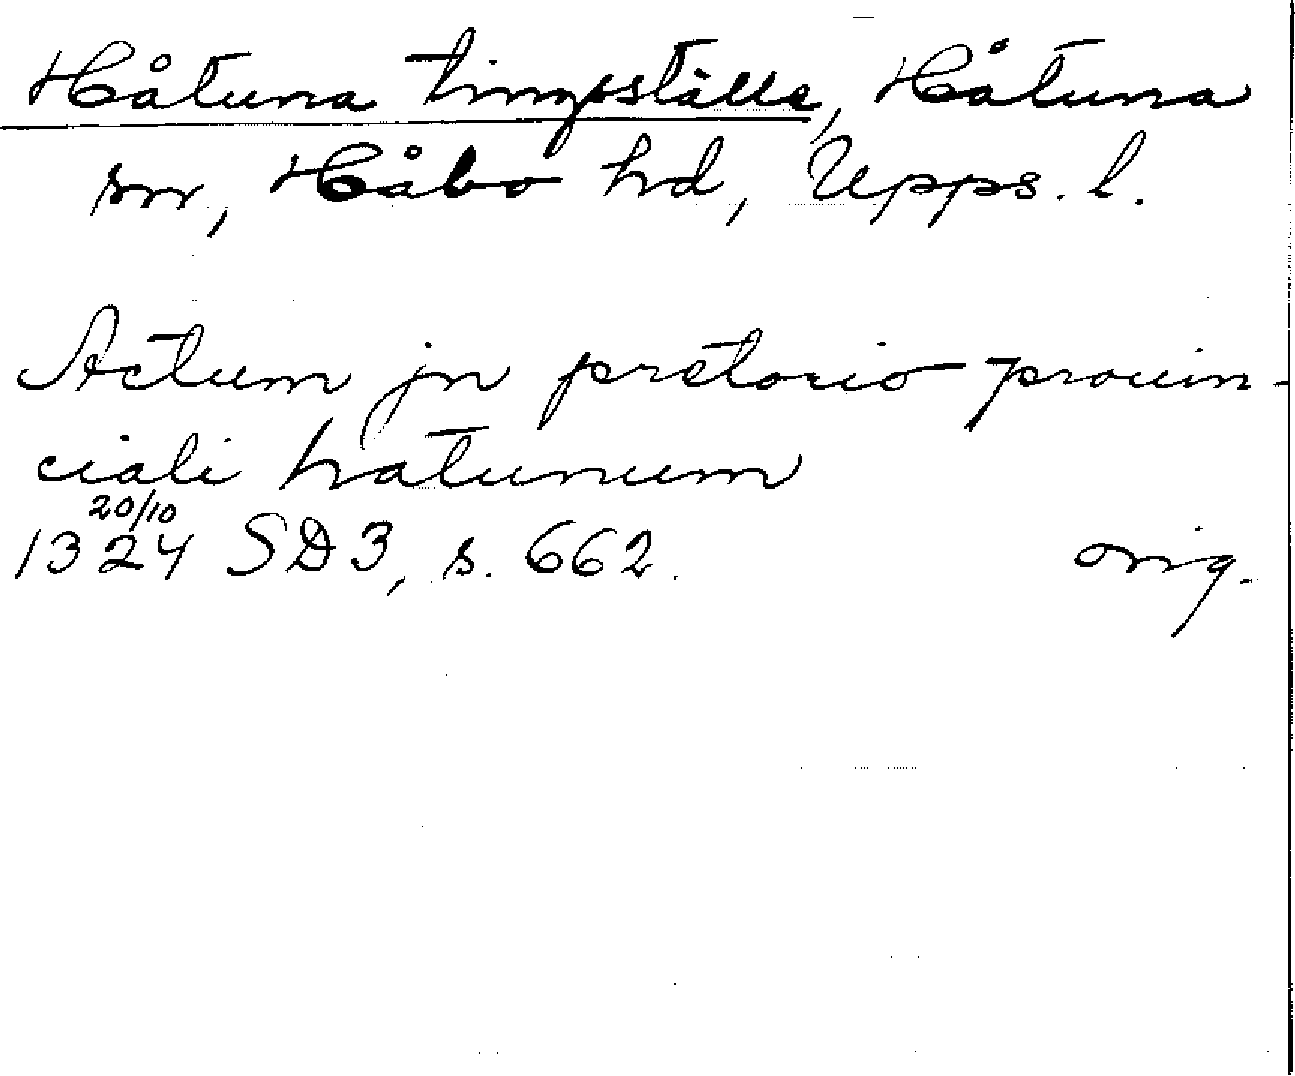 Håtuna tingsställe, Håtuna
sn, Håbo hd, Upps. l.
Actum jn pretorio prouin-
ciali hatunum
20/10
1324 SD3, s. 662. orig.